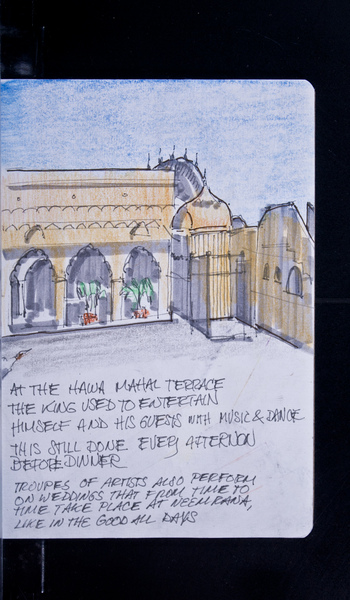 AT THE HAWA MAHAL TERRACE
THE KING USED TO ENTERTAIN
HIMSELF AND HIS GUESTS WITH MUSIC & DANCE
THIS STILL DONE EVERY AFTERNOON
BEFORE DINNER
TROUPES OF ARTISTS ALSO PERFORM
ON WEDDINGS THAT FROM TIME TO
TIME TAKE PLACE AT NEEMRANA,
LIKE IN THE GOOD ALL DAYS